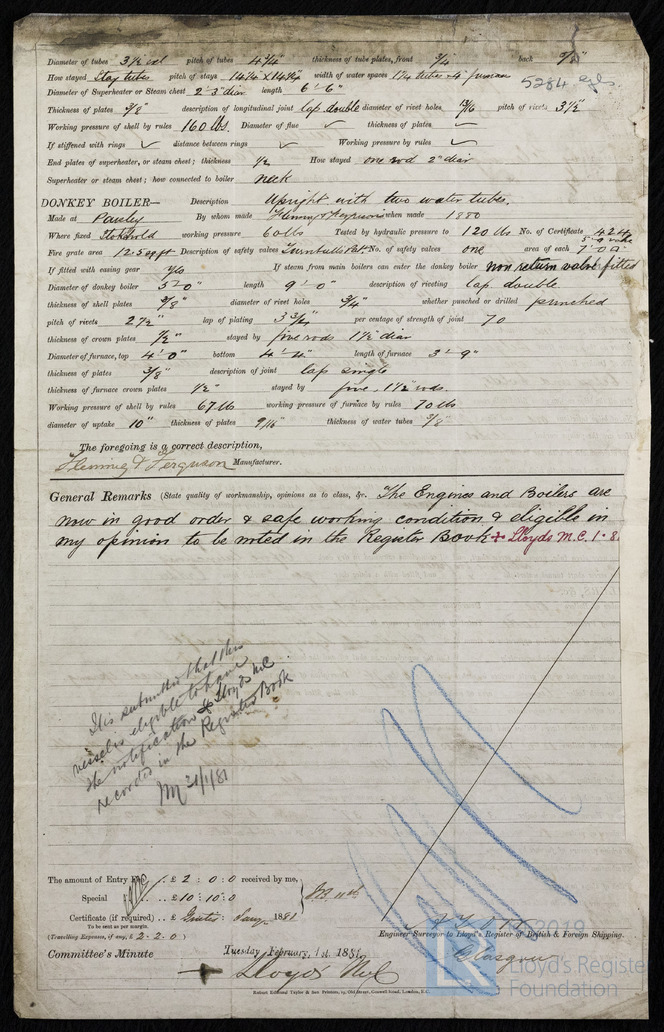 Diameter of tubes 3½ ext pitch of tubes 4¾" thickness of tube plates, front ¾ back
How stayed Stay tubes pitch of stays width of water spaces
5284
Diameter of Superheater or Steam chest 2'-3" diar length 6'-6"
Thickness of plates 3/8" description of longitudinal joint lap double diameter of rivet holes 13/16 pitch of rivets 3½"
Working pressure of shell by rules 160 lbs. Diameter of flue thickness of plates
If stiffened with rings distance between rings Working pressure by rules
End plates of superheater, or steam chest; thickness ½ How stayed one rod 2" diar
Superheater or steam chest; how connected to boiler neck
DONKEY BOILER— Description Upright with two water tubes.
Made at Paisley By whom made Fleming & Ferguson when made 1880
Where fixed Stokehold working pressure 60 lbs Tested by hydraulic pressure to 120 lbs No. of Certificate 424
Fire grate area 12.5 sq ft Description of safety valves Turnbull's Pat. No. of safety valves one area of each
If fitted with easing gear yes If steam from main boilers can enter the donkey boiler non return valve fitted
Diameter of donkey boiler 5'-0" length 9'-0" description of riveting lap double
thickness of shell plates 3/8" diameter of rivet holes ¾" whether punched or drilled punched
pitch of rivets 2½" lap of plating per centage of strength of joint 70
thickness of crown plates ½" stayed by five rods 1½" diar
Diameter of furnace, top 4'-0" bottom length of furnace 3'-9"
thickness of plates 3/8" description of joint lap single
thickness of furnace crown plates ½" stayed by five 1½" rods.
Working pressure of shell by rules 67 lbs working pressure of furnace by rules 70 lbs
diameter of uptake 10" thickness of plates 9/16" thickness of water tubes 3/8"
The foregoing is a correct description,
Fleming & Ferguson Manufacturer.
General Remarks (State quality of workmanship, opinions as to class, &c. The Engines and Boilers are
now in good order & safe working condition & eligible in
my opinion to be noted in the Register Book + Lloyds M.C. 1.8
It is submitted that this
vessel is eligible to have
the notification + Lloyds M.C
recorded in the Register Book
21/1/81
The amount of Entry Fee .. £ 2 : 0 : 0 received by me,
Special .. £ 10 : 10 : 0
Certificate (if required) .. £ Gratis : Jany. 1881
To be sent as per margin.
(Travelling Expenses, if any, £ 2. 2. 0 )
Engineer Surveyor to Lloyd's Register of British & Foreign Shipping.
Glasgow
Committee's Minute Tuesday, February, 1st. 1881.
+ Lloyds M.C
Robert Edmund Taylor & Son Printers, 19, Old Street, Goswell Road, London, E.C.
© 2019
Lloyd's Register
Foundation